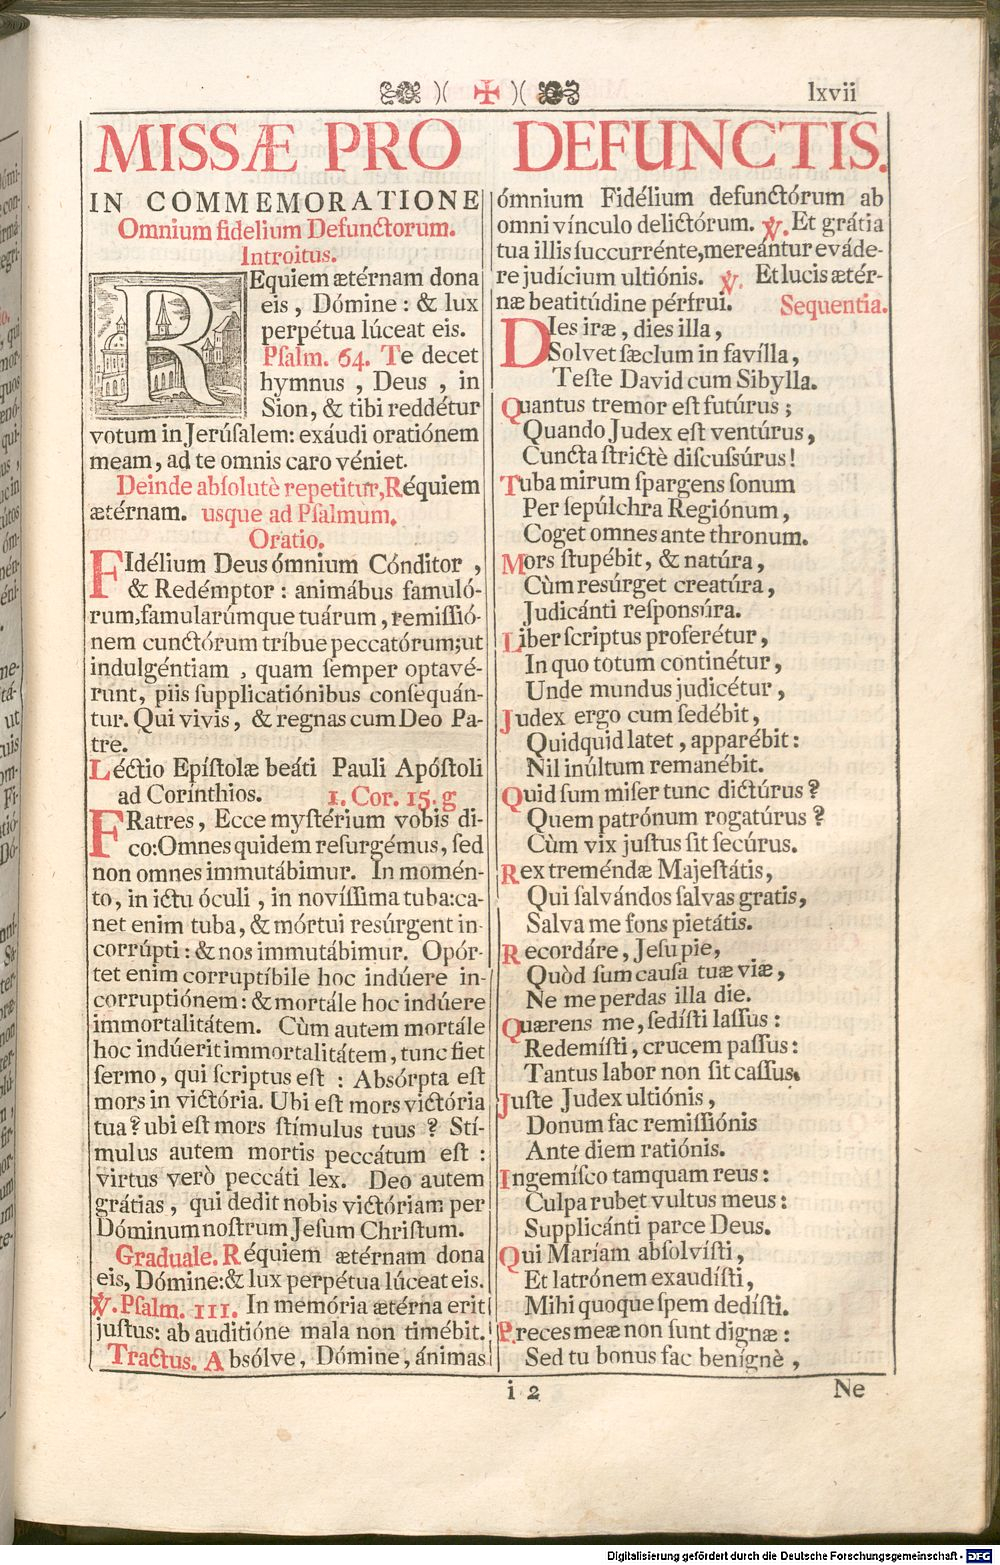 )( ✠ )( lxvii
MISSÆ PRO DEFUNCTIS.
IN COMMEMORATIONE
Omnium fidelium Defunctorum.
Introitus.
REquiem ætérnam dona
eis, Dómine: & lux
perpétua lúceat eis.
Pſalm. 64. Te decet
hymnus, Deus, in
Sion, & tibi reddétur
votum in Jerúſalem: exáudi oratiónem
meam, ad te omnis caro véniet.
Deinde abſolutè repetitur, Réquiem
ætérnam. usque ad Pſalmum.
Oratio.
FIdélium Deus ómnium Cónditor,
& Redémptor: animábus famuló-
rum, famularúmque tuárum, remiſſió-
nem cunctórum tríbue peccatórum; ut
indulgéntiam, quam ſemper optavé-
runt, piis ſupplicatiónibus conſequán-
tur. Qui vivis, & regnas cum Deo Pa-
tre.
Léctio Epíſtolæ beáti Pauli Apóſtoli
ad Corínthios. 1. Cor. 15. g
FRatres, Ecce myſtérium vobis di-
co: Omnes quidem reſurgémus, ſed
non omnes immutábimur. In momén-
to, in ictu óculi, in novíſſima tuba: ca-
net enim tuba, & mórtui resúrgent in-
corrúpti: & nos immutábimur. Opór-
tet enim corruptíbile hoc indúere in-
corruptiónem: & mortále hoc indúere
immortalitátem. Cùm autem mortále
hoc indúerit immortalitátem, tunc fiet
ſermo, qui ſcriptus eſt: Absórpta eſt
mors in victória. Ubi eſt mors victória
tua? ubi eſt mors ſtímulus tuus? Stí-
mulus autem mortis peccátum eſt:
virtus verò peccáti lex. Deo autem
grátias, qui dedit nobis victóriam per
Dóminum noſtrum Jeſum Chriſtum.
Graduale. Réquiem ætérnam dona
eis, Dómine: & lux perpétua lúceat eis.
℣. Pſalm. 111. In memória ætérna erit
juſtus: ab auditióne mala non timébit.
Tractus. Absólve, Dómine, ánimas
ómnium Fidélium defunctórum ab
omni vínculo delictórum. ℣. Et grátia
tua illis ſuccurrénte, mereántur eváde-
re judícium ultiónis. ℣. Et lucis ætér-
næ beatitúdine pérfrui. Sequentia.
DIes iræ, dies illa,
Solvet ſæclum in favílla,
Teſte David cum Sibylla.
Quantus tremor eſt futúrus;
Quando Judex eſt ventúrus,
Cuncta ſtrictè diſcuſsúrus!
Tuba mirum ſpargens ſonum
Per ſepúlchra Regiónum,
Coget omnes ante thronum.
Mors ſtupébit, & natúra,
Cùm resúrget creatúra,
Judicánti reſponsúra.
Liber ſcriptus proferétur,
In quo totum continétur,
Unde mundus judicétur,
Judex ergo cum ſedébit,
Quidquid latet, apparébit:
Nil inúltum remanébit.
Quid ſum miſer tunc dictúrus?
Quem patrónum rogatúrus?
Cùm vix juſtus ſit ſecúrus.
Rex treméndæ Majeſtátis,
Qui ſalvándos ſalvas gratis,
Salva me fons pietátis.
Recordáre, Jeſu pie,
Quòd ſum cauſa tuæ viæ,
Ne me perdas illa die.
Quærens me, ſedíſti laſſus:
Redemíſti, crucem paſſus:
Tantus labor non ſit caſſus.
Juſte Judex ultiónis,
Donum fac remiſſiónis
Ante diem ratiónis.
Ingemíſco tamquam reus:
Culpa rubet vultus meus:
Supplicánti parce Deus.
Qui Maríam abſolvíſti,
Et latrónem exaudíſti,
Mihi quoque ſpem dedíſti.
Preces meæ non ſunt dignæ:
Sed tu bonus fac benígnè,
i 2 Ne
Digitalisierung gefördert durch die Deutsche Forschungsgemeinschaft - DFG